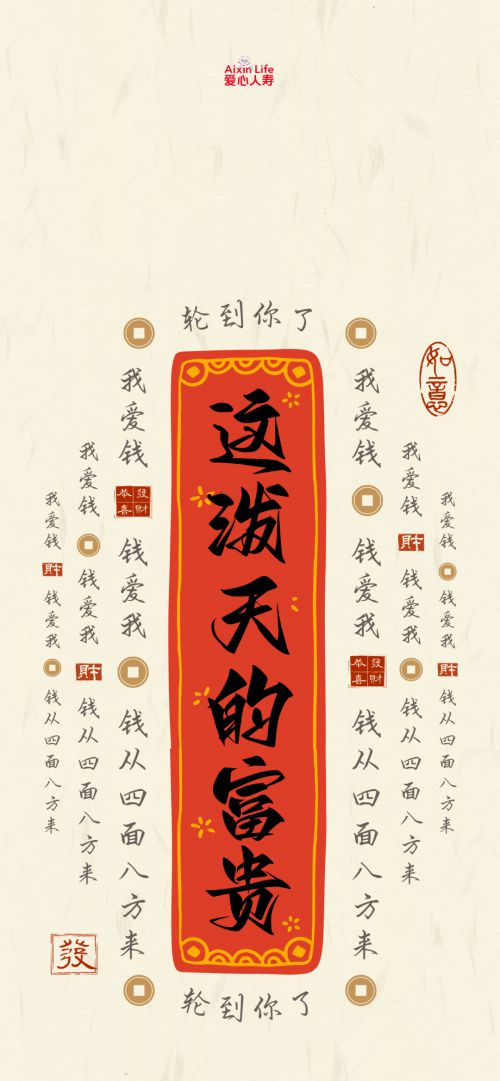 Aixin Life
爱心人寿
轮到你了
这泼天的富贵
我爱钱
恭喜發财
钱爱我
钱从四面八方来
我爱钱
钱爱我
財
钱从四面八方来
我爱钱
財
钱爱我
钱从四面八方来
我爱钱
钱爱我
恭喜發财
钱从四面八方来
我爱钱
財
钱爱我
钱从四面八方来
我爱钱
钱爱我
財
钱从四面八方来
如意
發
轮到你了